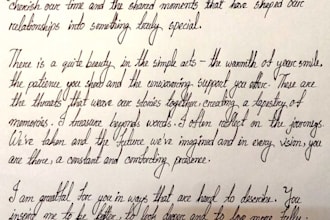 cherish our time and the shared moments that have shaped our
relationships into something truly special.
There is a quite beauty in the simple acts – the warmth of your smile,
the patience you show and the unwavering support you offer. These are
the threads that weave our stories together, creating a tapestry of
memories. I treasure beyond words. I often reflect on the journeys
We've taken and the future we've imagined and in every vision, you
are there, a constant and comforting presence.
I am greatful for you in ways that are hard to describe. You
inspire me to be better, to look deeper and to love more fully.